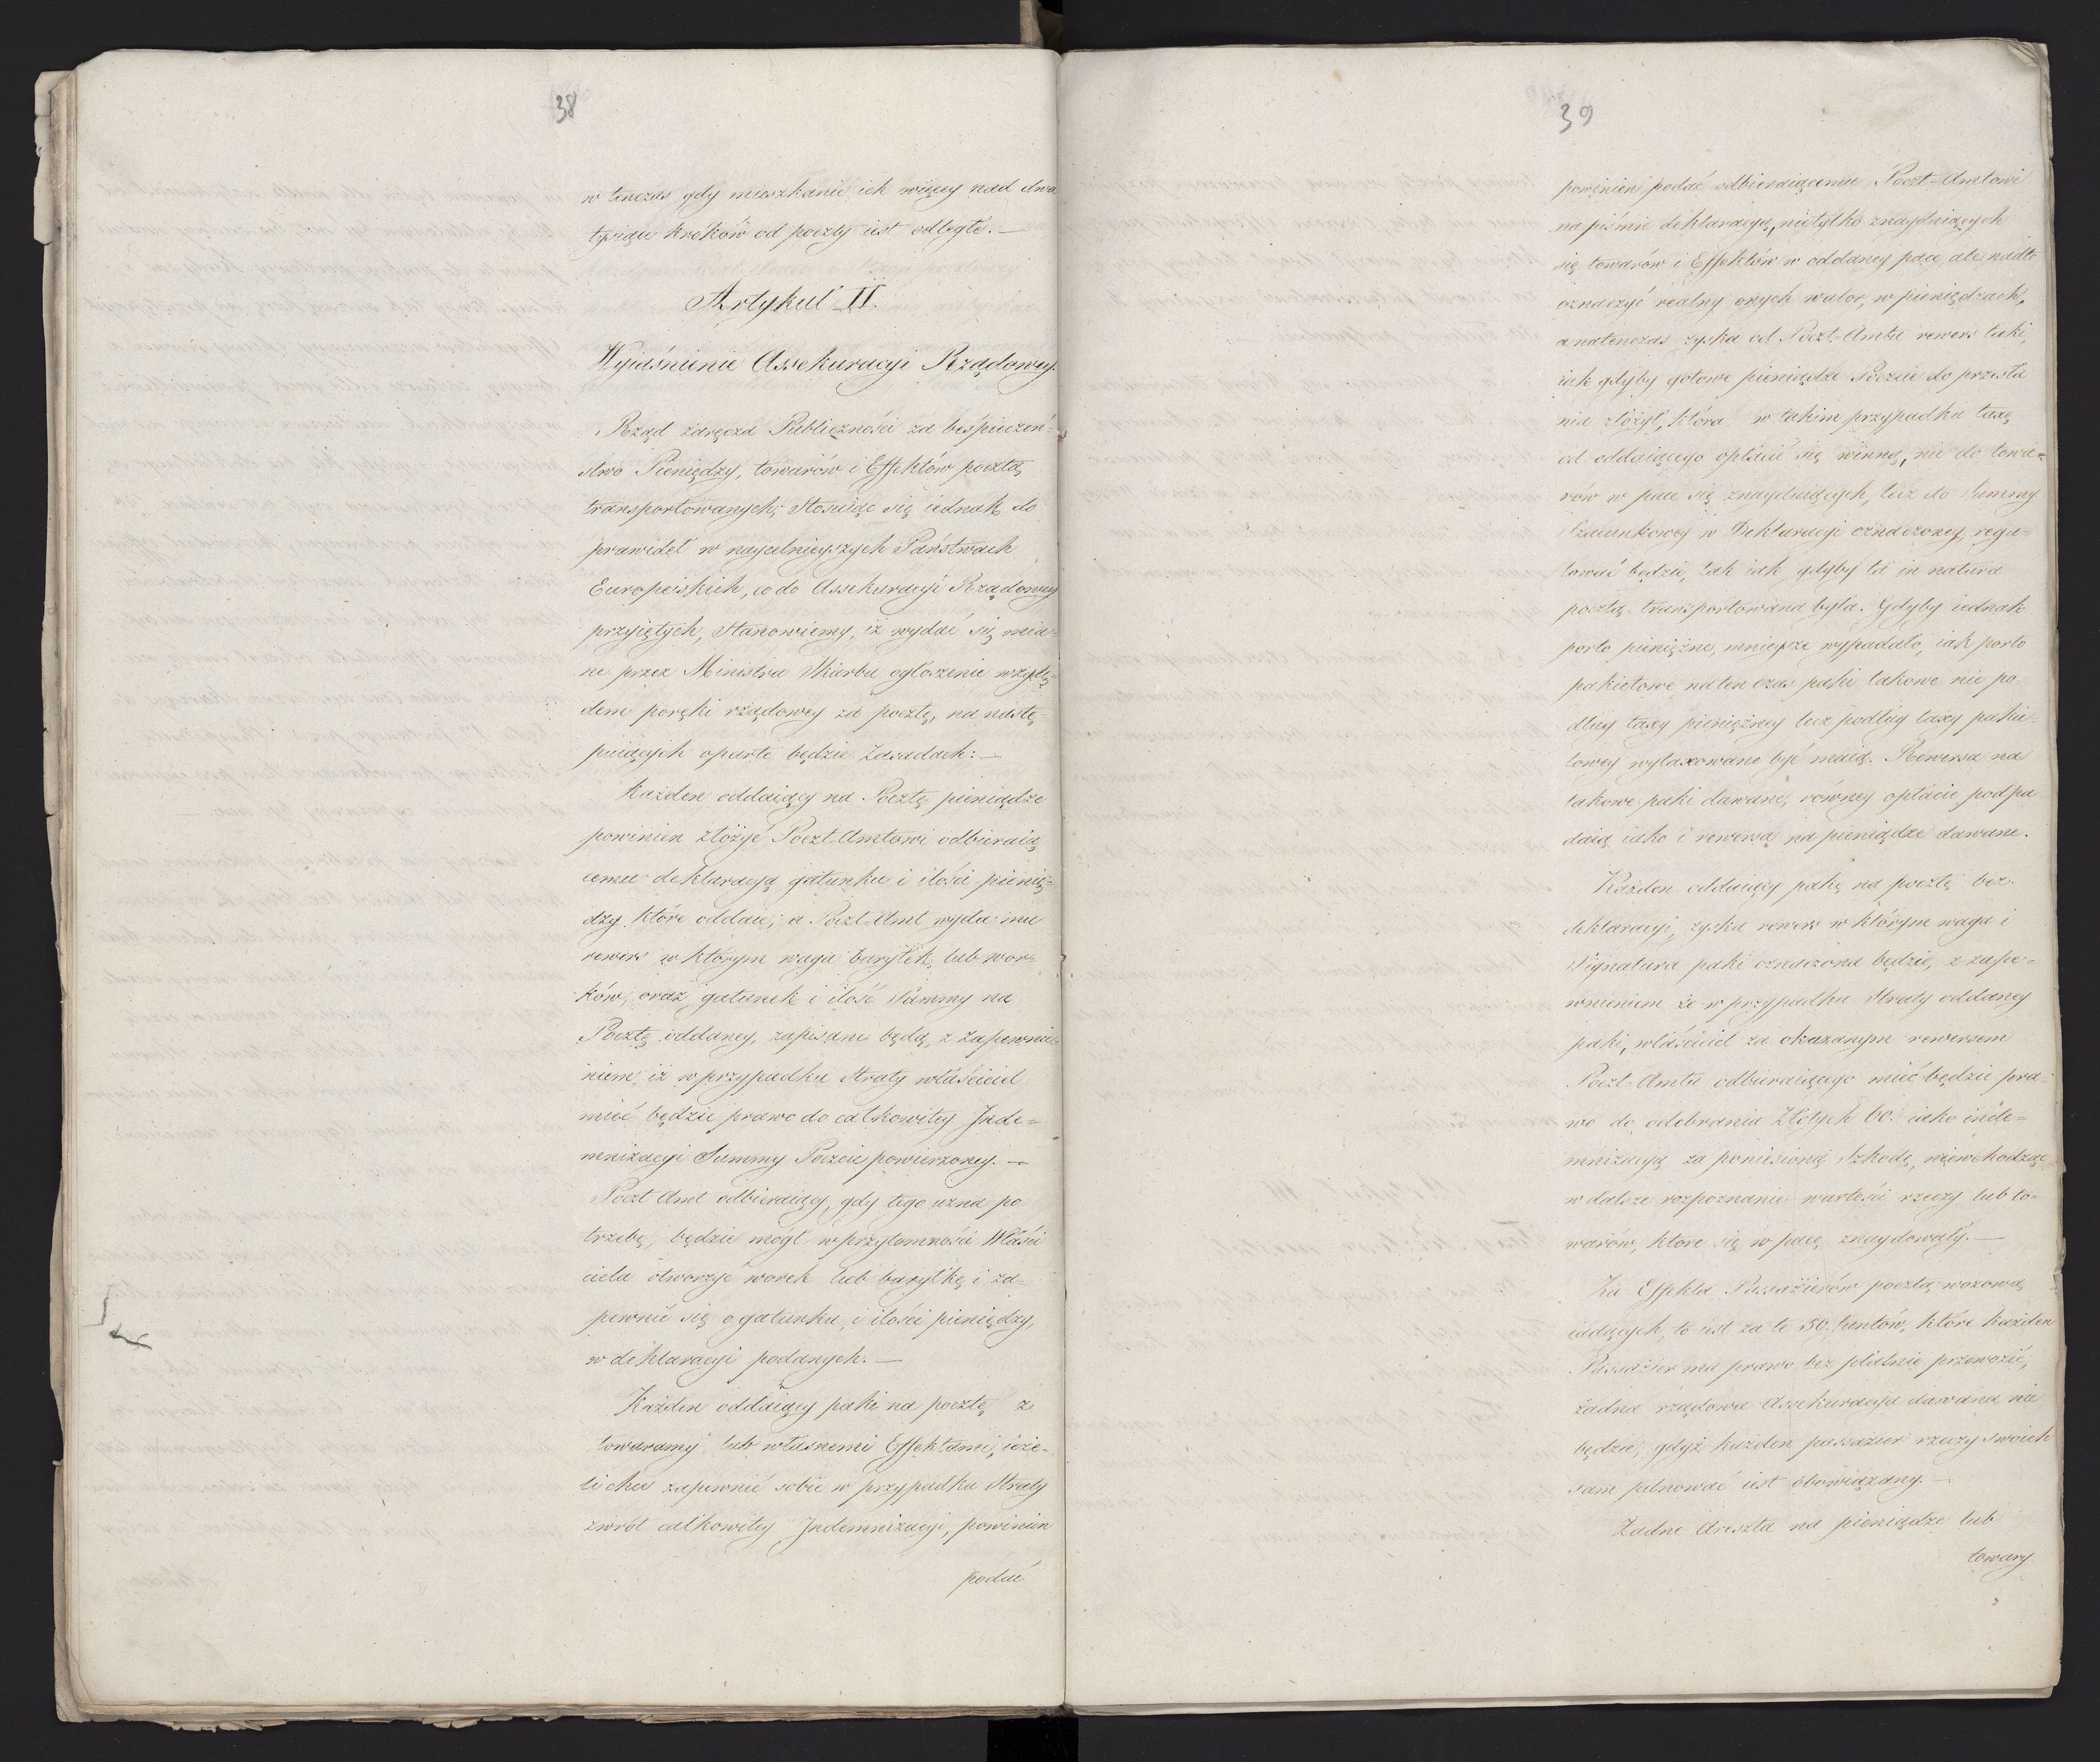 38
w tenczas gdy mieszkanie ich więcey nad dwa
tysiące kroków od poczty iest odległe. —
Artykuł II.
Wyiaśnienie Assekuracyi Rządowey.
Rząd zaręcza Publiczności za bespieczeń-
stwo Pieniędzy, towarów i Effektów pocztą
transportowanych; Stosuiąc się iednak do
prawideł w naycelnieyszych Państwach
Europeiskich, co do Assekuracyi Rządowey
przyiętych, Stanowiemy, iż wydać się maią-
ne przez Ministra Skarbu ogłoszenie wzglę-
dem poręki rządowey za pocztę, na nastę-
puiących oparte będzie Zasadach: —
Każden oddaiący na Pocztę pieniądze
powinien złożyć Poczt-Amtowi odbieraią
cemu deklaracyą gatunku i ilości pienię-
dzy które oddaie; a Poczt-Amt wyda mu
rewers w którym waga baryłek lub wor-
ków, oraz gatunek i ilość Summy na
Pocztę oddaney, zapisane będą, z zapewnie-
niem, iż w przypadku straty właściciel
mieć będzie prawo do całkowitey Inde-
mnizacyi Summy Poczcie powierzoney. —
Poczt Amt odbieraiący, gdy tego uzna po
trzebę, będzie mógł w przytomności Właści
ciela otworzyć worek lub baryłkę i za-
pewnić się o gatunku i ilości pieniędzy,
w deklaracyi podanych. —
Każden oddaiący paki na pocztę z
towaramy lub własnemi Effektami, ieże-
li chce zapewnić sobie w przypadku Straty
zwrót całkowitey Indemnizacyi, powinien
podać
39
powinien podać odbieraiącemu Poczt-Amtowi
na piśmie deklaracyą, nietylko znayduiących
się towarów i Effektów w oddaney pace, ale nadto
oznaczyć realny onych walor, w pieniędzach,
a natenczas zyska od Poczt-Amtu rewers taki,
iak gdyby gotowe pieniądze Poczcie do przesła
nia złożył, która w takim przypadku taxę
od oddaiącego opłacić się winną, nie do towa-
rów w pace się znayduiących, lecz do Summy
Szacunkowey w Deklaracyi oznaczoney regu-
lować będzie, tak iak gdyby ta in natura
pocztą transportowana była. Gdyby iednak
porto pieniężne, mnieysze wypadało, iak porto
pakietowe, naten czas paki takowe nie po
dług taxy pieniężney lecz podług taxy pakie-
towey wytaxowane być maią. Rewersa na
takowe paki dawane, równey opłacie podpa
daią iako i rewersa na pieniądze dawane.
Każden oddaiący pakę na pocztę bez
deklaracyi, zyska rewers w którym waga i
Signatura paki oznaczona będzie, z zape-
wnieniem że w przypadku Straty oddaney
paki, właściciel za okazanym rewersem
Poczt-Amtu odbieraiącego mieć będzie pra-
wo do odebrania Złotych 60. iako inde-
mnizacyą za poniesioną Szkodę, niewchodząc
w dalsze rozpoznanie wartości rzeczy lub to-
warów, które się w pace znaydowały. —
Za Effekta Passażierów pocztą wozową
iadących, to iest za te 50. funtów, które każden
Passażier ma prawo bez płatnie przewozić,
żadna rządowa Assekuracya dawana nie
będzie, gdyż każden passażier rzeczy swoich
sam pilnować iest obowiązany. —
Żadne Areszta na pieniądze lub
towary